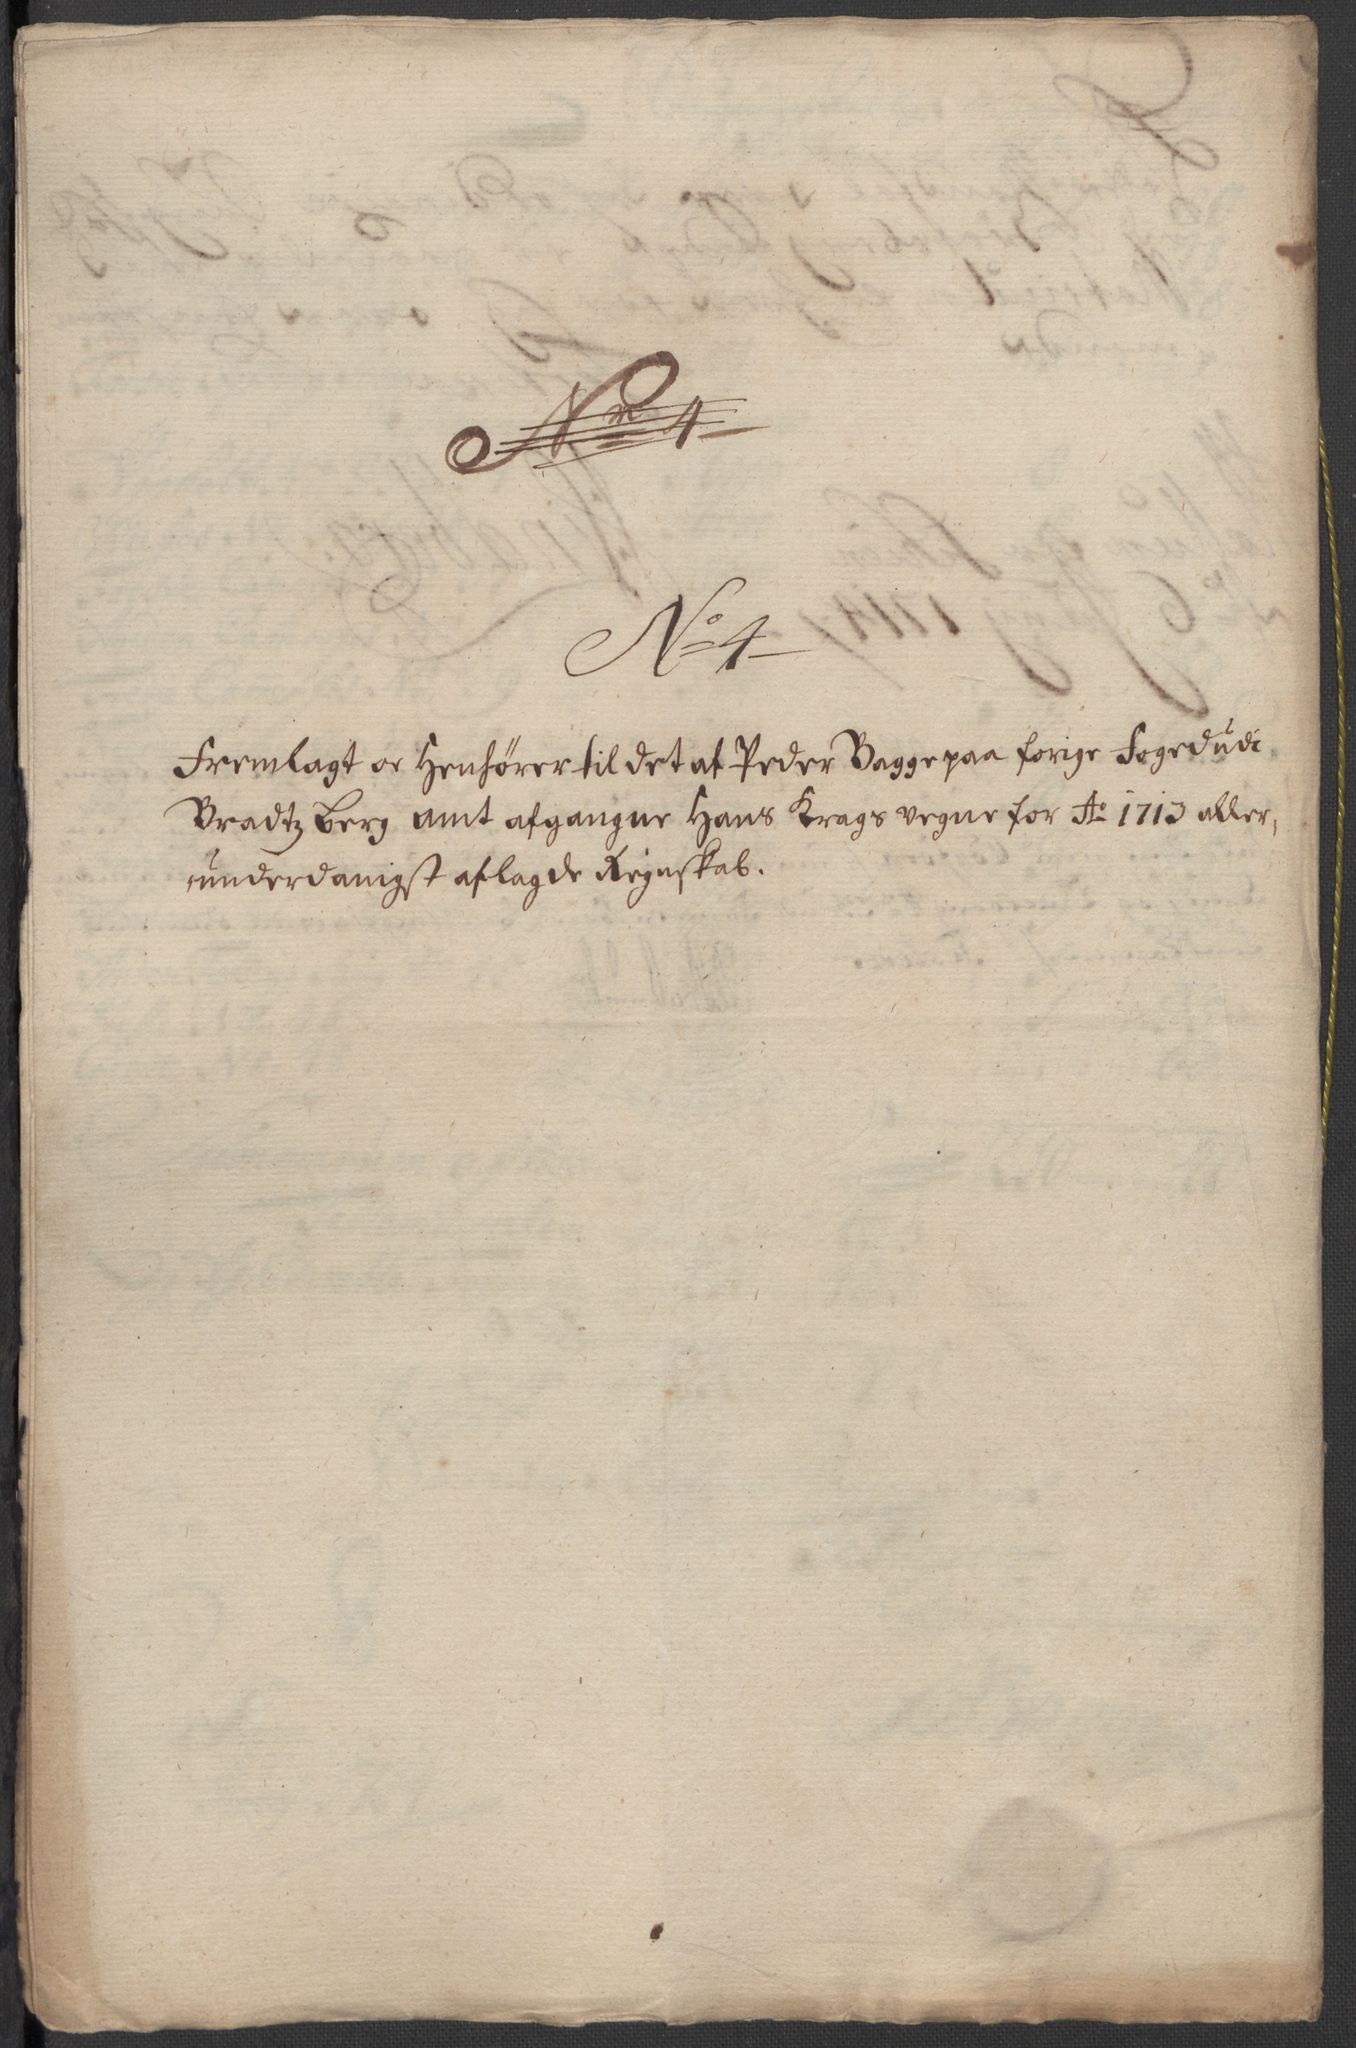 No 4
No 4
Fremlagt oc Henhører til det af Peder Bagge paa forige Foged udi
Bradtzberg amt afgangne Hans Krags vegne for Ao 1713 aller,
underdanigst aflagde Regnskab.